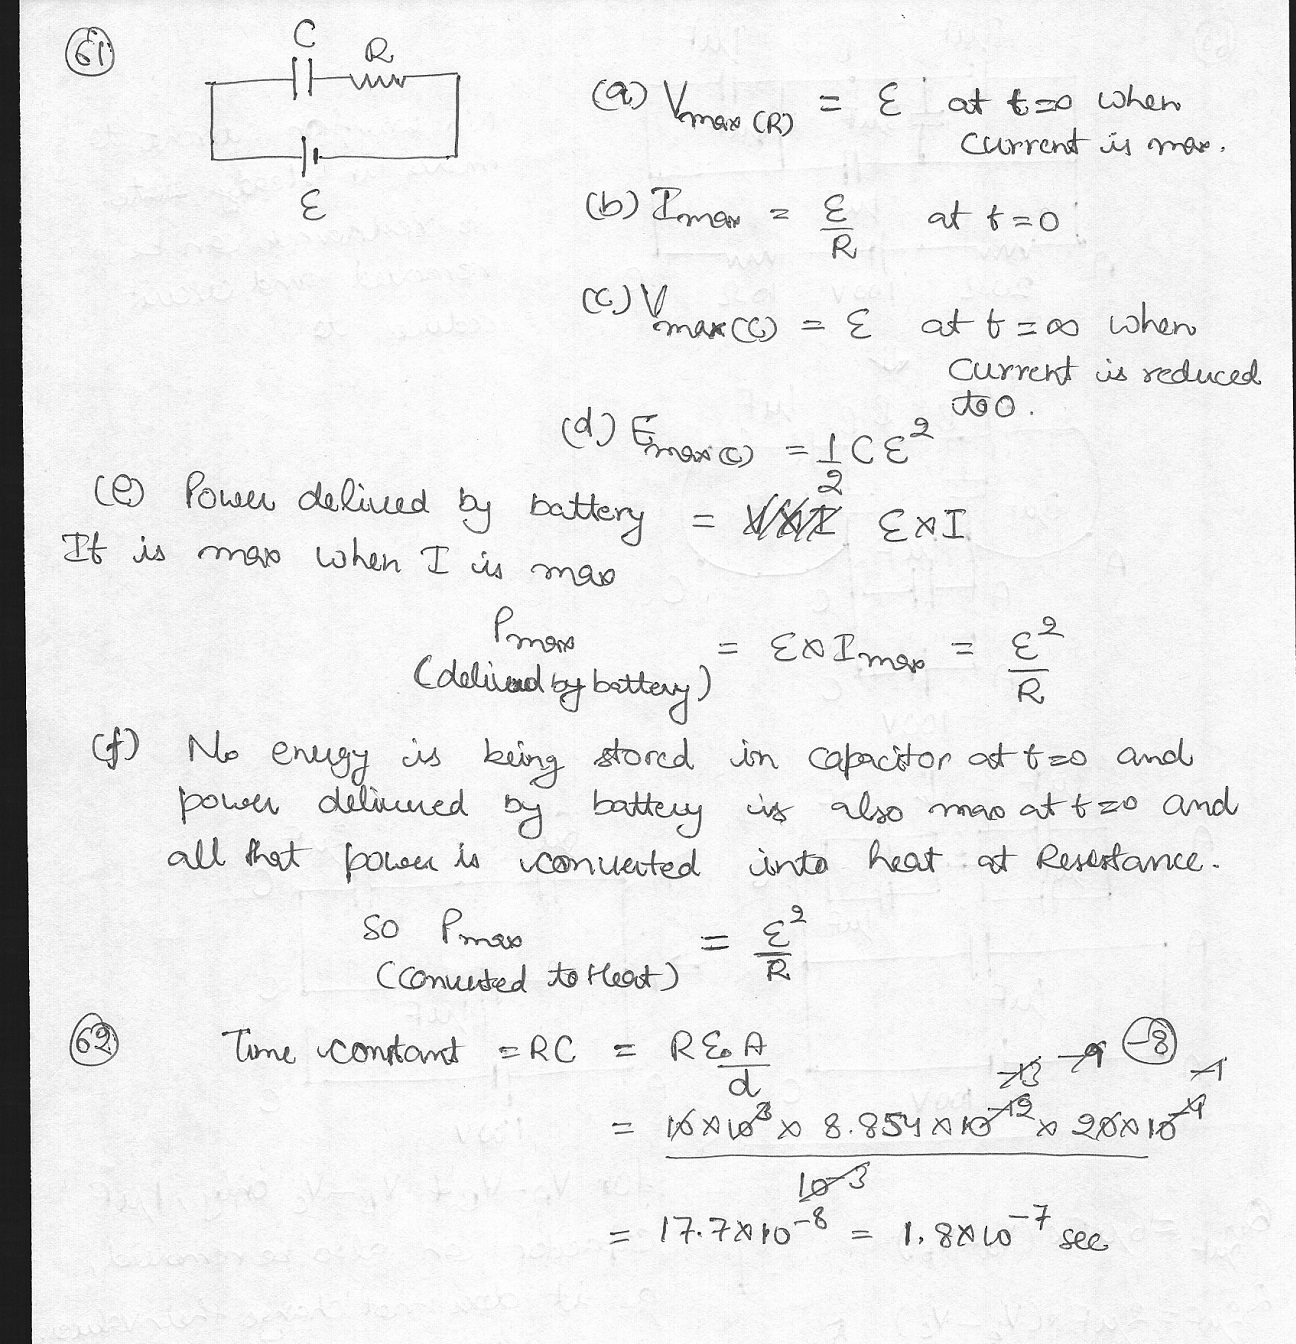 61
C
R
ε
(a) Vmax (R) = ε at t=0 when
current is max.
(b) Imax = ε/R at t=0
(c) Vmax(C) = ε at t=∞ when
current is reduced
to 0.
(d) Emax(C) = 1/2 Cε²
(e) Power delivered by battery = ε×I
It is max when I is max
Pmax = ε×Imax = ε²/R
(delivered by battery)
(f) No energy is being stored in capacitor at t=0 and
power delivered by battery is also max at t=0 and
all that power is converted into heat at Resistance.
so Pmax = ε²/R
(converted to Heat)
62
Time constant = RC = Rε₀A/d
-13 -9 -8 -1
= 10×10³ × 8.854×10⁻¹² × 20×10⁻⁴
10⁻³
= 17.7×10⁻⁸ = 1.8×10⁻⁷ sec